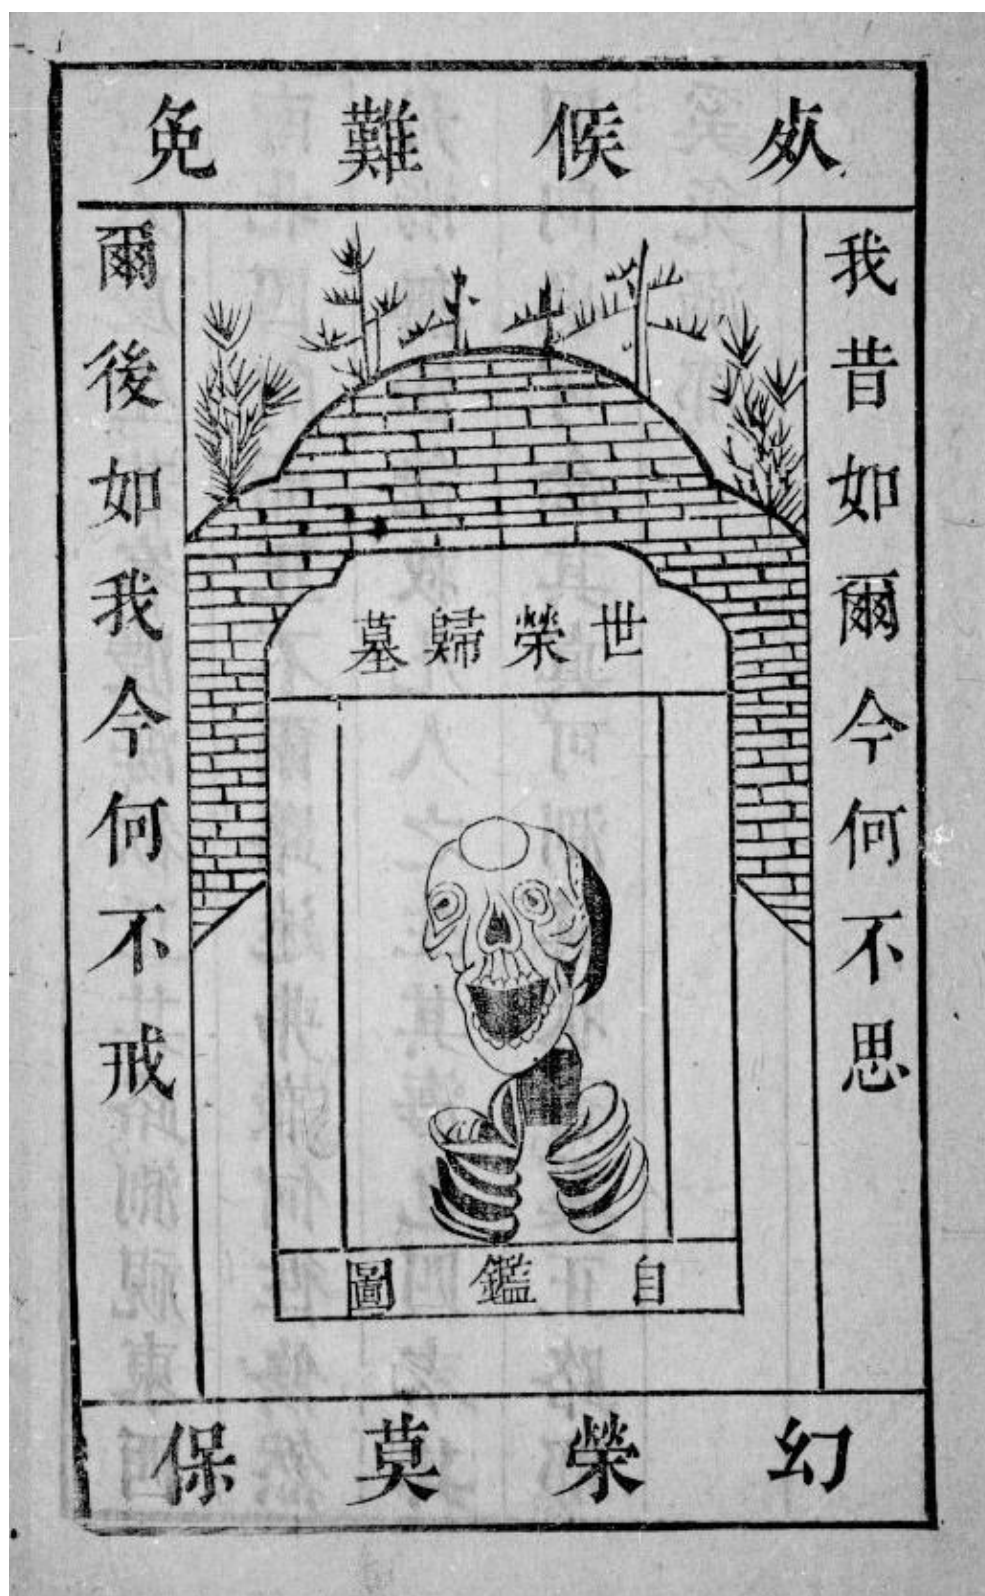 死候難免
我昔如爾今何不思
爾後如我今何不戒
世榮歸墓
自鑑圖
幻榮莫保